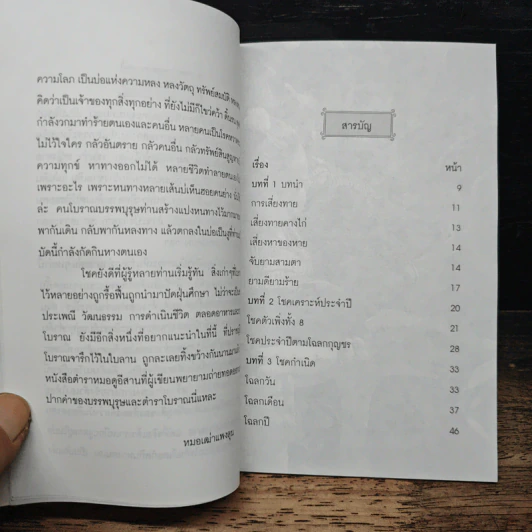 ความโลภ เป็นบ่อแห่งความหลง หลงวัตถุ ทรัพย์สมบัติ
คิดว่าเป็นเจ้าของทุกสิ่งทุกอย่าง ที่ยังไม่มีก็ไขว่คว้า
กำลังวกมาทำร้ายตนเองและคนอื่น หลายคนเป็นโรค
ไม่ไว้ใจใคร กลัวอันตราย กลัวคนอื่น กลัวทรัพย์สิน
ความทุกข์ หาทางออกไม่ได้ หลายชีวิตทำลายตนเอง
เพราะอะไร เพราะหนทางหลายเส้นบ่เห็นฮอยคนย่าง
ล่ะ คนโบราณบรรพบุรุษท่านสร้างแปงหนทางไว้
พากันเดิน กลับพากันหลงทาง แล้วตกลงในบ่อเป็น
บัดนี้กำลังกัดกินทางตนเอง
โชคยังดีที่ผู้รู้หลายท่านเริ่มรู้ทัน สิ่งเก่าๆ
ไว้หลายอย่างถูกรื้อฟื้นถูกนำมาปัดฝุ่นศึกษา ไม่ว่าจะเป็น
ประเพณี วัฒนธรรม การดำเนินชีวิต ตลอดอาหาร
โบราณ ยังมีอีกสิ่งหนึ่งที่อยากแนะนำในที่นี้
โบราณจารึกไว้ในใบลาน ถูกละเลยทิ้งขว้างกันนาน
หนังสือตำราหมอดูอีสานที่ผู้เขียนพยายามถ่ายทอด
ปากคำของบรรพบุรุษและตำราโบราณนี่แหละ
หมอเฒ่า
สารบัญ
เรื่อง หน้า
บทที่ 1 บทนำ 9
การเสี่ยงทาย 11
เสี่ยงทายคางไก่ 13
เสี่ยงหาของหาย 14
จับยามสามตา 14
ยามดียามร้าย 17
บทที่ 2 โชคเคราะห์ประจำปี 20
โชคตัวเพิ่งทั้ง 8 21
โชคประจำปีตามโฉลกกุญชร 28
บทที่ 3 โชคกำเนิด 33
โฉลกวัน 33
โฉลกเดือน 37
โฉลกปี 46